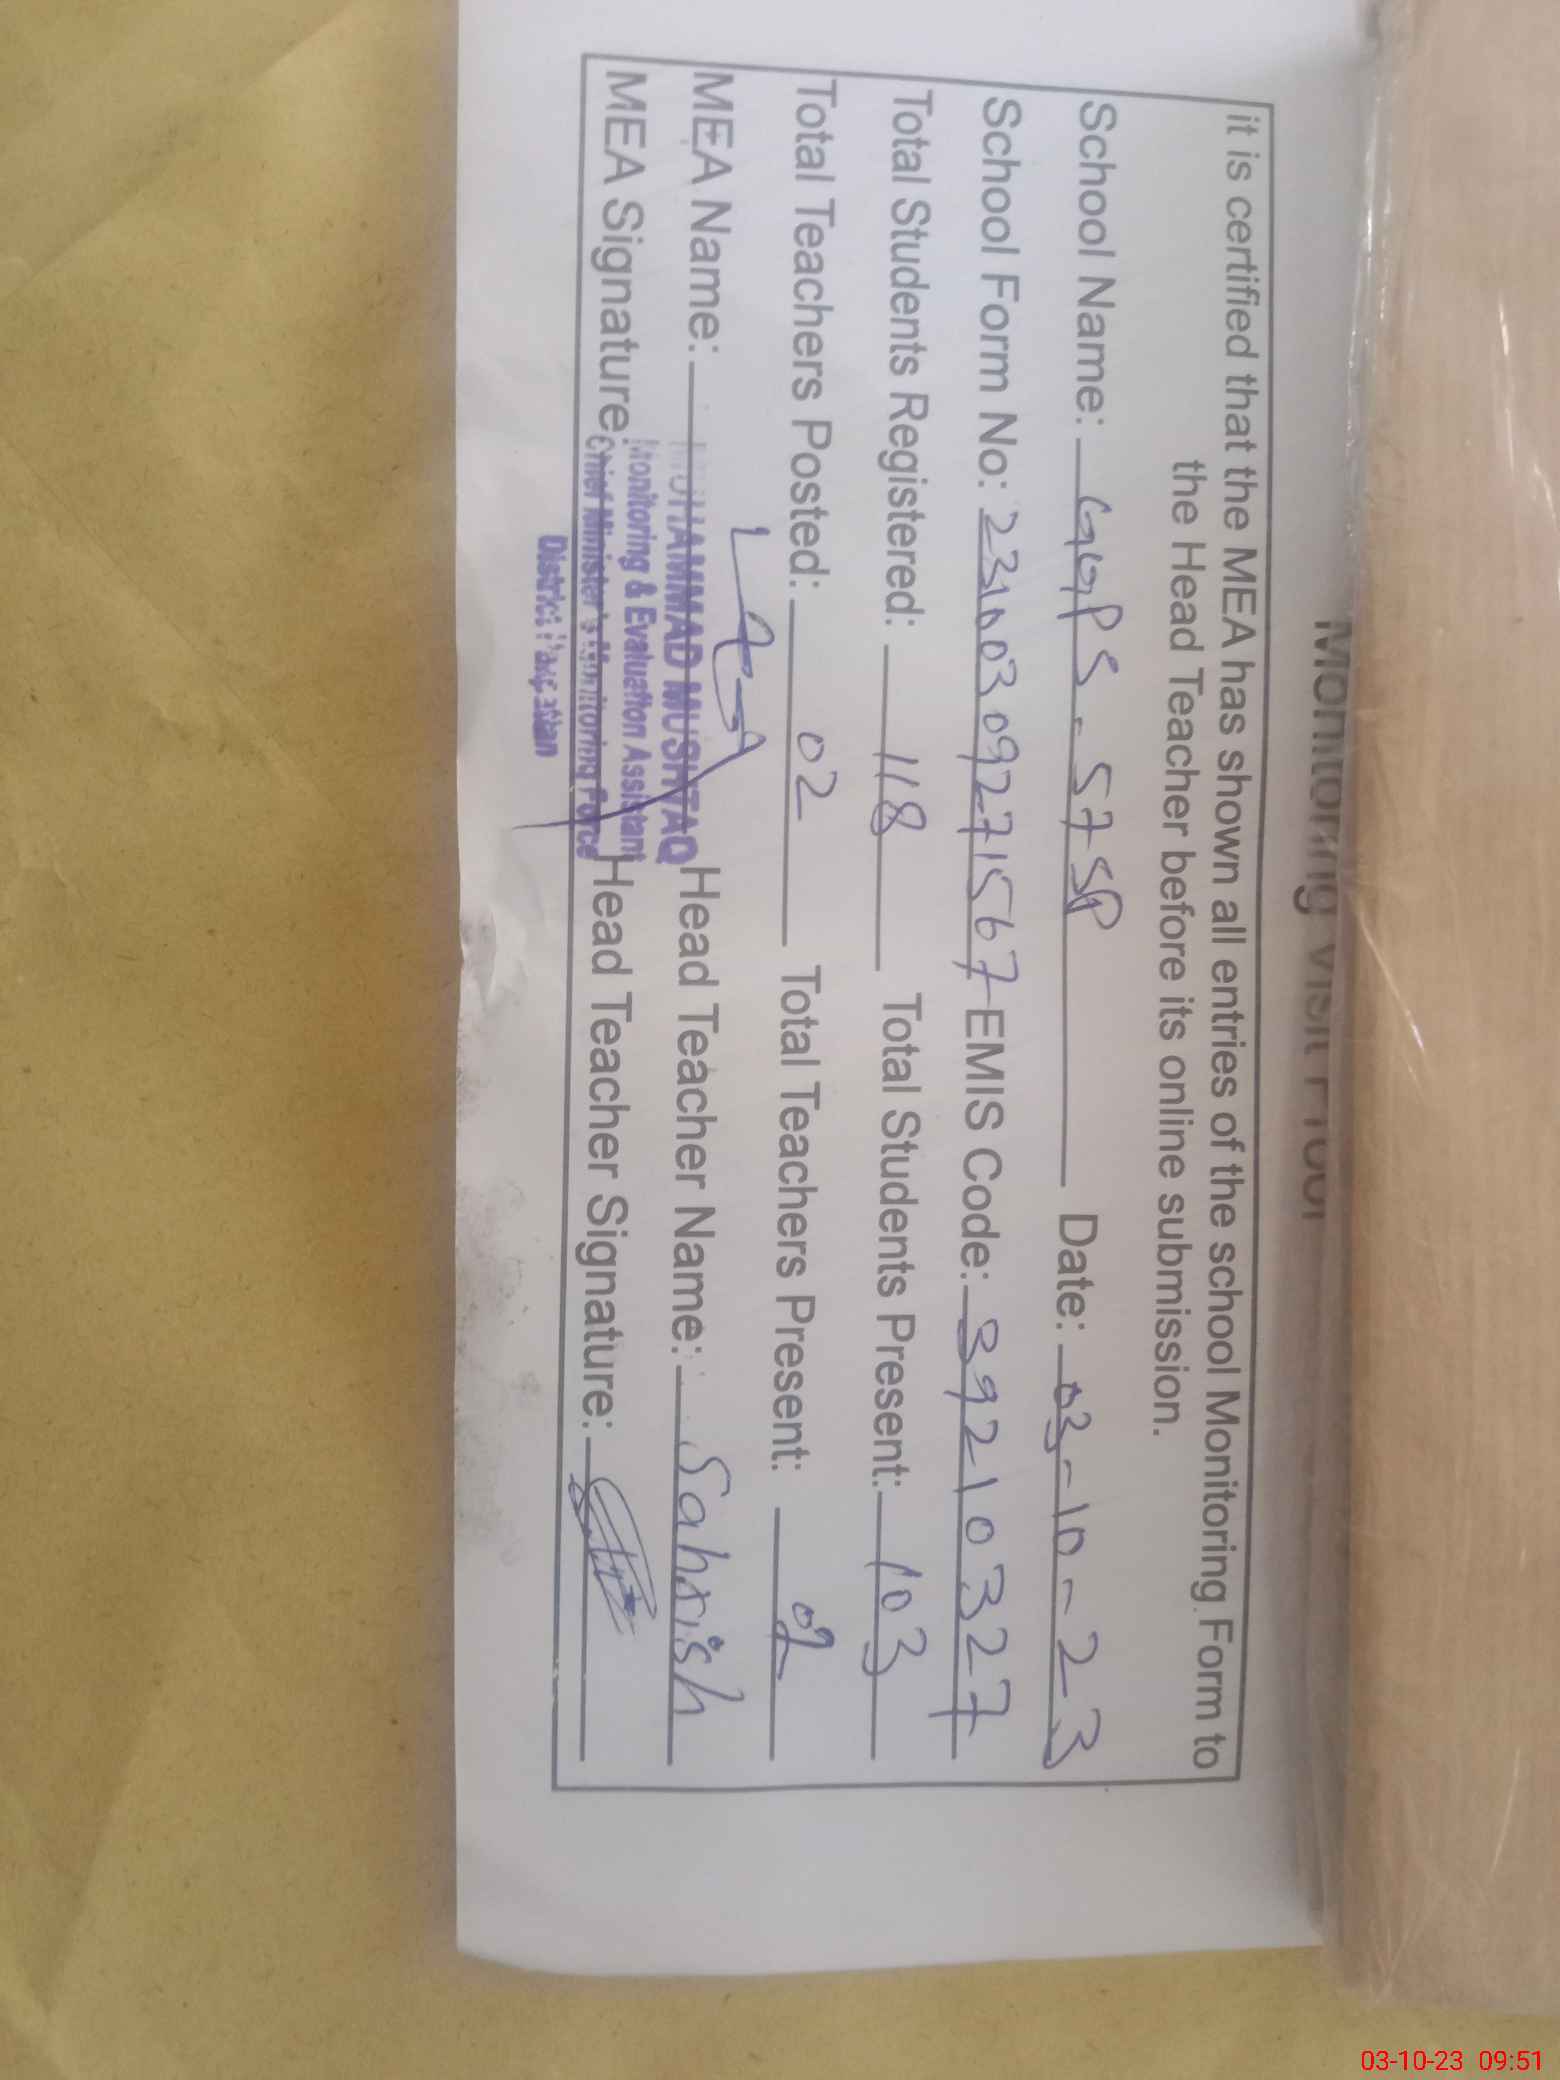 Monitoring Visit Proof
it is certified that the MEA has shown all entries of the school Monitoring Form to
the Head Teacher before its online submission.
School Name: GGPS - 57SP Date: 03-10-23
School Form No: 23100309271567 EMIS Code: 39210327
Total Students Registered: 118 Total Students Present: 103
Total Teachers Posted: 02 Total Teachers Present: 02
MEA Name: MUHAMMAD MUSHTAQ Head Teacher Name: Sahrish
Monitoring & Evaluation Assistant
MEA Signature: Chief Minister's Monitoring Force Head Teacher Signature:
District Pakpattan
03-10-23 09:51